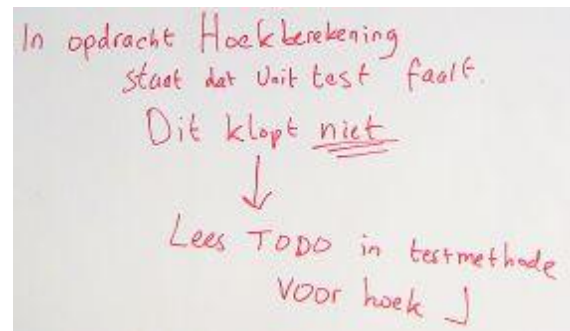 In opdracht Hoekberekening
staat dat Unit test faalt.
Dit klopt niet
Lees TODO in testmethode
voor hoek